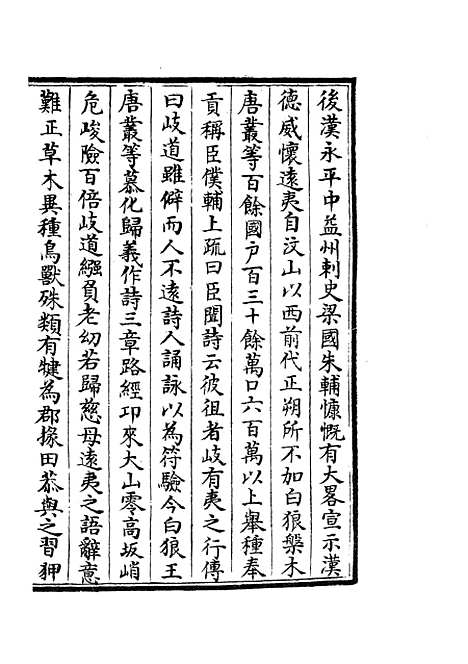 後漢永平中益州刺史梁國朱輔慷慨有大畧宣示漢
德威懷遠夷自汶山以西前代正朔所不加白狼槃木
唐叢等百餘國户百三十餘萬口六百萬以上舉種奉
貢稱臣僕輔上疏曰臣聞詩云彼徂者岐有夷之行傳
曰岐道雖僻而人不遠詩人誦詠以為符驗今白狼王
唐叢等慕化歸義作詩三章路經邛來大山零高坂峭
危峻險百倍岐道繦負老幼若歸慈母遠夷之語辭意
難正草木異種鳥獸殊類有犍為郡掾田恭與之習狎